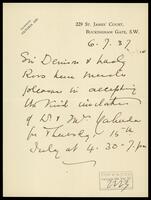 229 St. James' Court,
Buckingham Gate, S.W.
6.7.37
Sir Denison & Lady
Ross have much
pleasure in accepting
the kind invitation
of Dr & Mrs Yahuda
for Thursday 15th
July at 4.30-7 pm